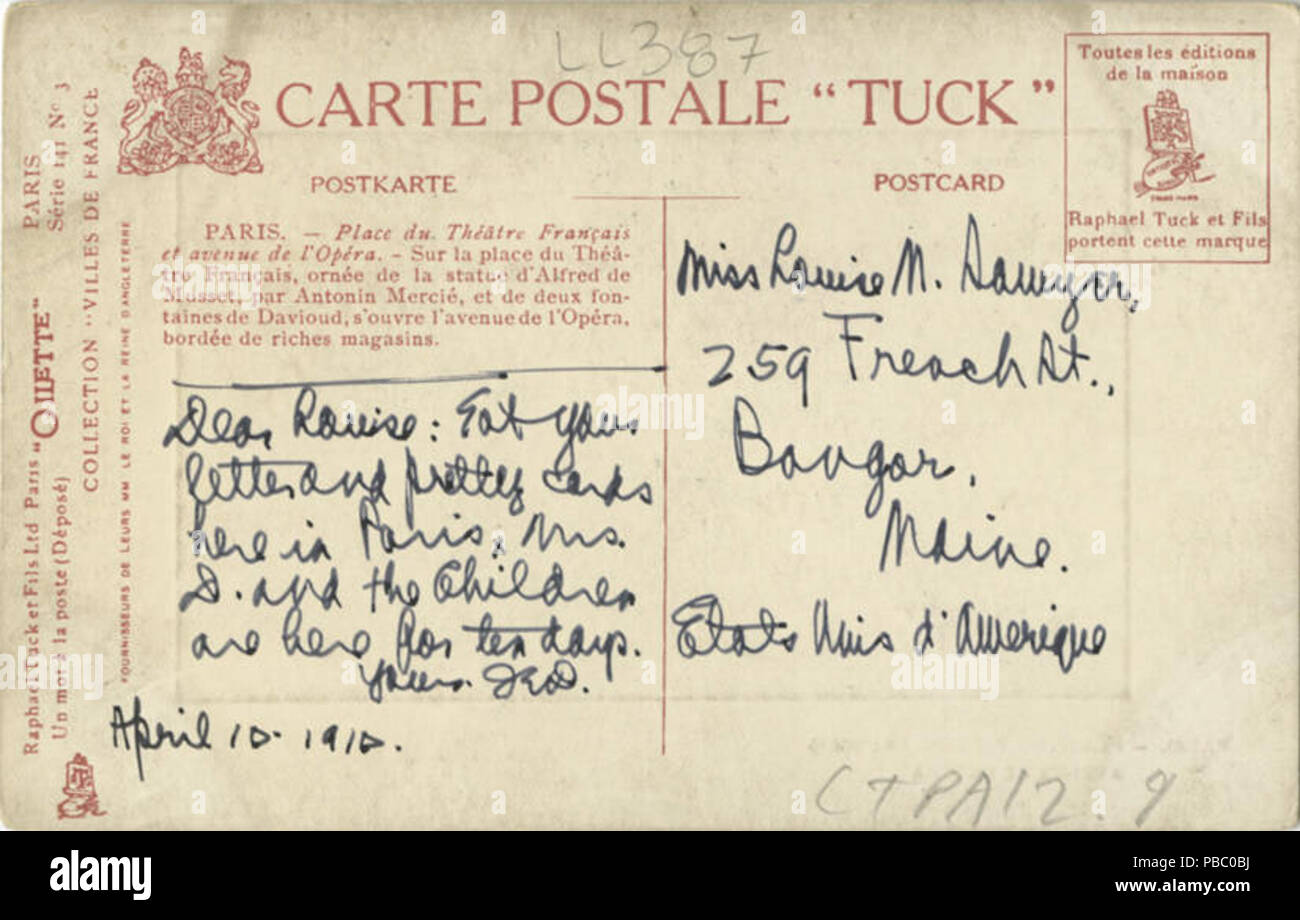 LL387
CARTE POSTALE “TUCK”
POSTKARTE
POSTCARD
Toutes les éditions
de la maison
TRADE MARK
Raphael Tuck et Fils
portent cette marque
PARIS
Série 141 Nº 3
COLLECTION "VILLES DE FRANCE
FOURNISSEURS DE LEURS MM LE ROI ET LA REINE D'ANGLETERRE
Raphael Tuck et Fils Ltd Paris "OILETTE"
Un mot à la poste (Déposé)
PARIS. — Place du Théâtre Français
et avenue de l'Opéra. - Sur la place du Théâ-
tre Français, ornée de la statue d'Alfred de
Musset, par Antonin Mercié, et de deux fon-
taines de Davioud, s'ouvre l'avenue de l'Opéra,
bordée de riches magasins.
Dear Louise: Got your
letter and pretty cards
here in Paris. Mrs.
D. and the Children
are here for ten days.
Yours
April 10. 1910.
Miss Louise M. Sawyer,
259 French St.,
Bangor,
Maine.
Etats Unis d'Amerique
CTPA12.9
alamy
Image ID: PBC0BJ
www.alamy.com